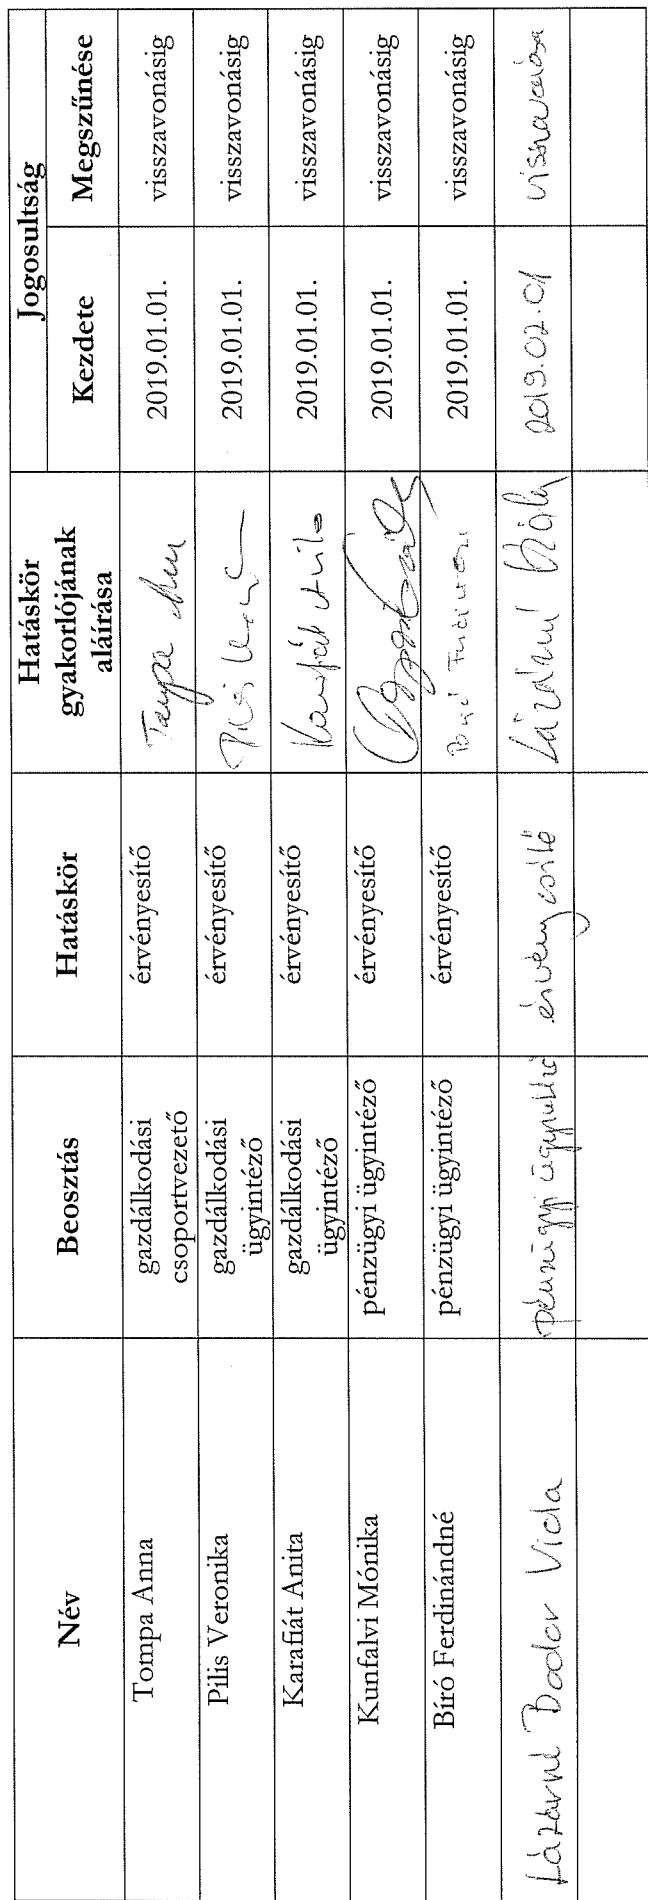 Név
Beosztás
Hatáskör
Hatáskör
gyakorlójának
aláírása
Jogosultság
Kezdete
Megszűnése
Tompa Anna
gazdálkodási
csoportvezető
érvényesítő
Tompa Anna
2019.01.01.
visszavonásig
Pilis Veronika
gazdálkodási
ügyintéző
érvényesítő
2019.01.01.
visszavonásig
Karafiát Anita
gazdálkodási
ügyintéző
érvényesítő
Karafiát Anita
2019.01.01.
visszavonásig
Kunfalvi Mónika
pénzügyi ügyintéző
érvényesítő
2019.01.01.
visszavonásig
Bíró Ferdinándné
pénzügyi ügyintéző
érvényesítő
2019.01.01.
visszavonásig
Lázárné Bodor Viola
pénzügyi ügyintéző
érvényesítő
2019.02.01